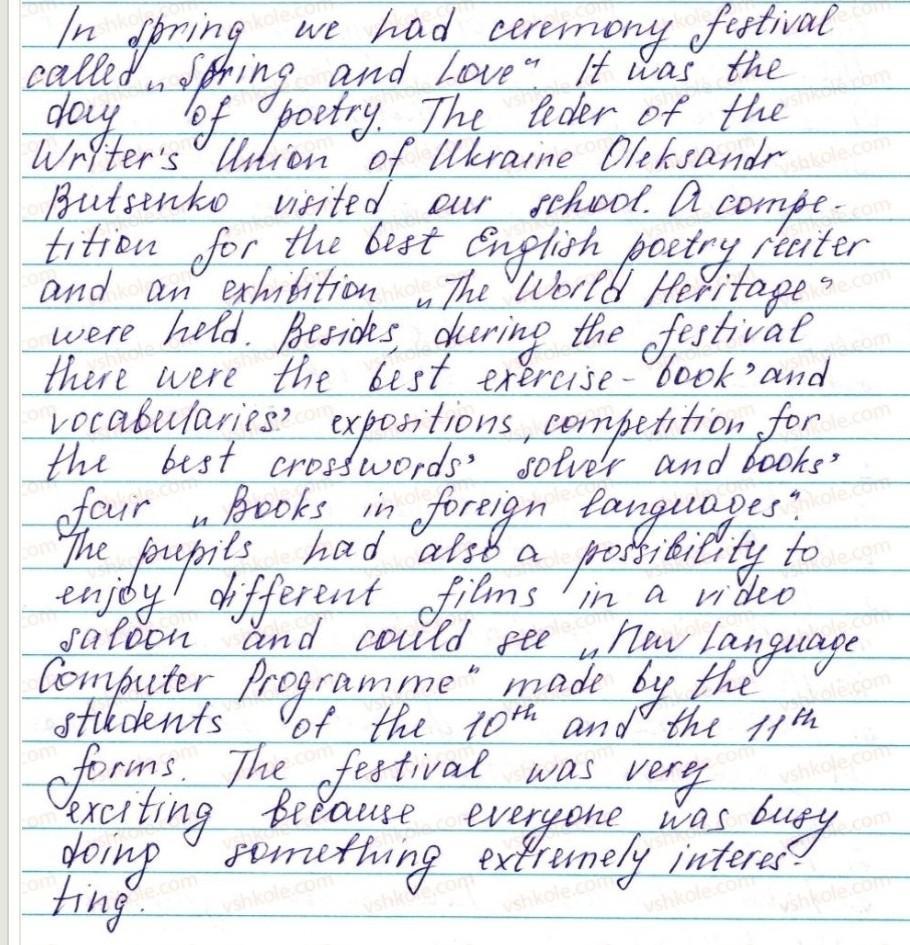 In spring we had ceremony festival
called „Spring and Love“ It was the
day of poetry. The leder of the
Writer's Union of Ukraine Oleksandr
Butsenko visited our school. A compe-
tition for the best English poetry reciter
and an exhibition „The World Heritage“
were held. Besides, during the festival
there were the best exercise-book' and
vocabularies' expositions, competition for
the best crosswords' solver and books'
fair „Books in foreign languages“.
The pupils had also a possibility to
enjoy different films in a video
saloon and could see „New Language
Computer Programme“ made by the
students of the 10th and the 11th
forms. The festival was very
exciting because everyone was busy
doing something extremely interes-
ting.